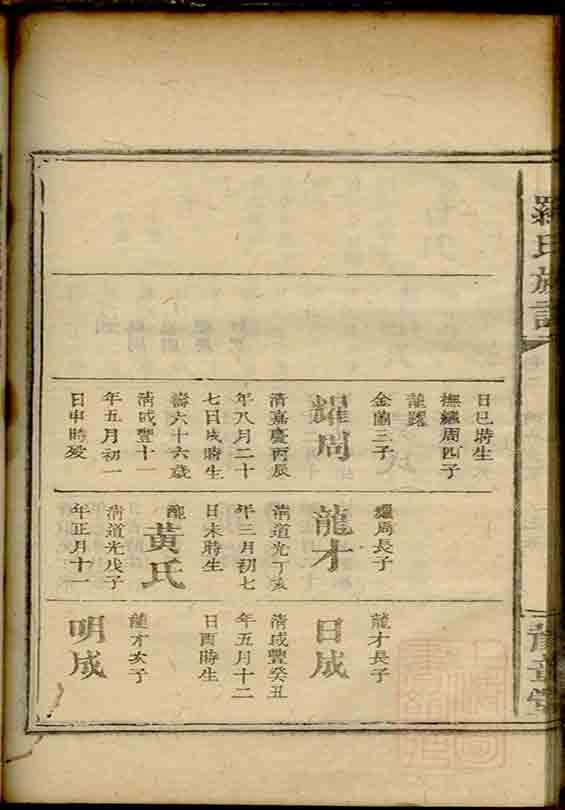 羅氏族譜
豫章堂
日巳時生
撫繼周四子
龍躍
金蘭三子
耀周
清嘉慶丙辰
年八月二十
七日戌時生
壽六十六歲
清咸豐十一
年五月初一
日申時歿
耀周長子
龍才
清道光丁亥
年三月初七
日未時生
配
黄氏
清道光戊子
年正月十一
龍才長子
日成
清咸豐癸丑
年五月十二
日酉時生
龍才次子
明成